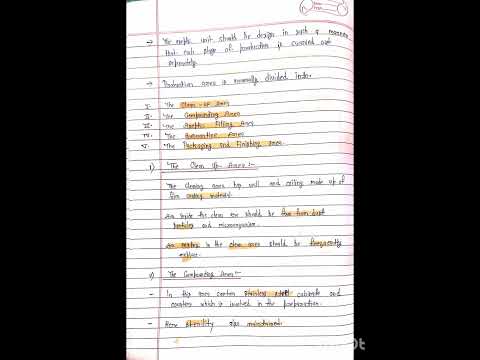 → The aseptic unit should be design in such a manner
that each stage of production is carried out
separately.
→ Production area is normally divided into:
I. The Clean-up Area
II. The Compounding Area
III. The Aseptic Filling Area
IV. The Quarantine Area
V. The Packaging and Finishing Area
1) The Clean Up Area :-
The Clean up area wall and ceiling made up of
An the clean area should be free from dust
and microorganism.
in the clean area should be frequently
2) The Compounding Area :-
- In this area contain stainless steel cabinets and
counters which is involved in the preparation.
- Here sterility maintained.